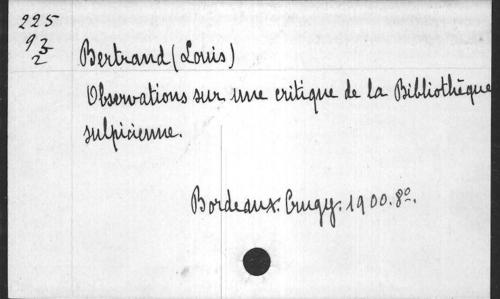 225
93
2
Bertrand (Louis)
Observations sur une critique de la Bibliothèque
sulpicienne.
Bordeaux. Crugy. 1900. 8º.